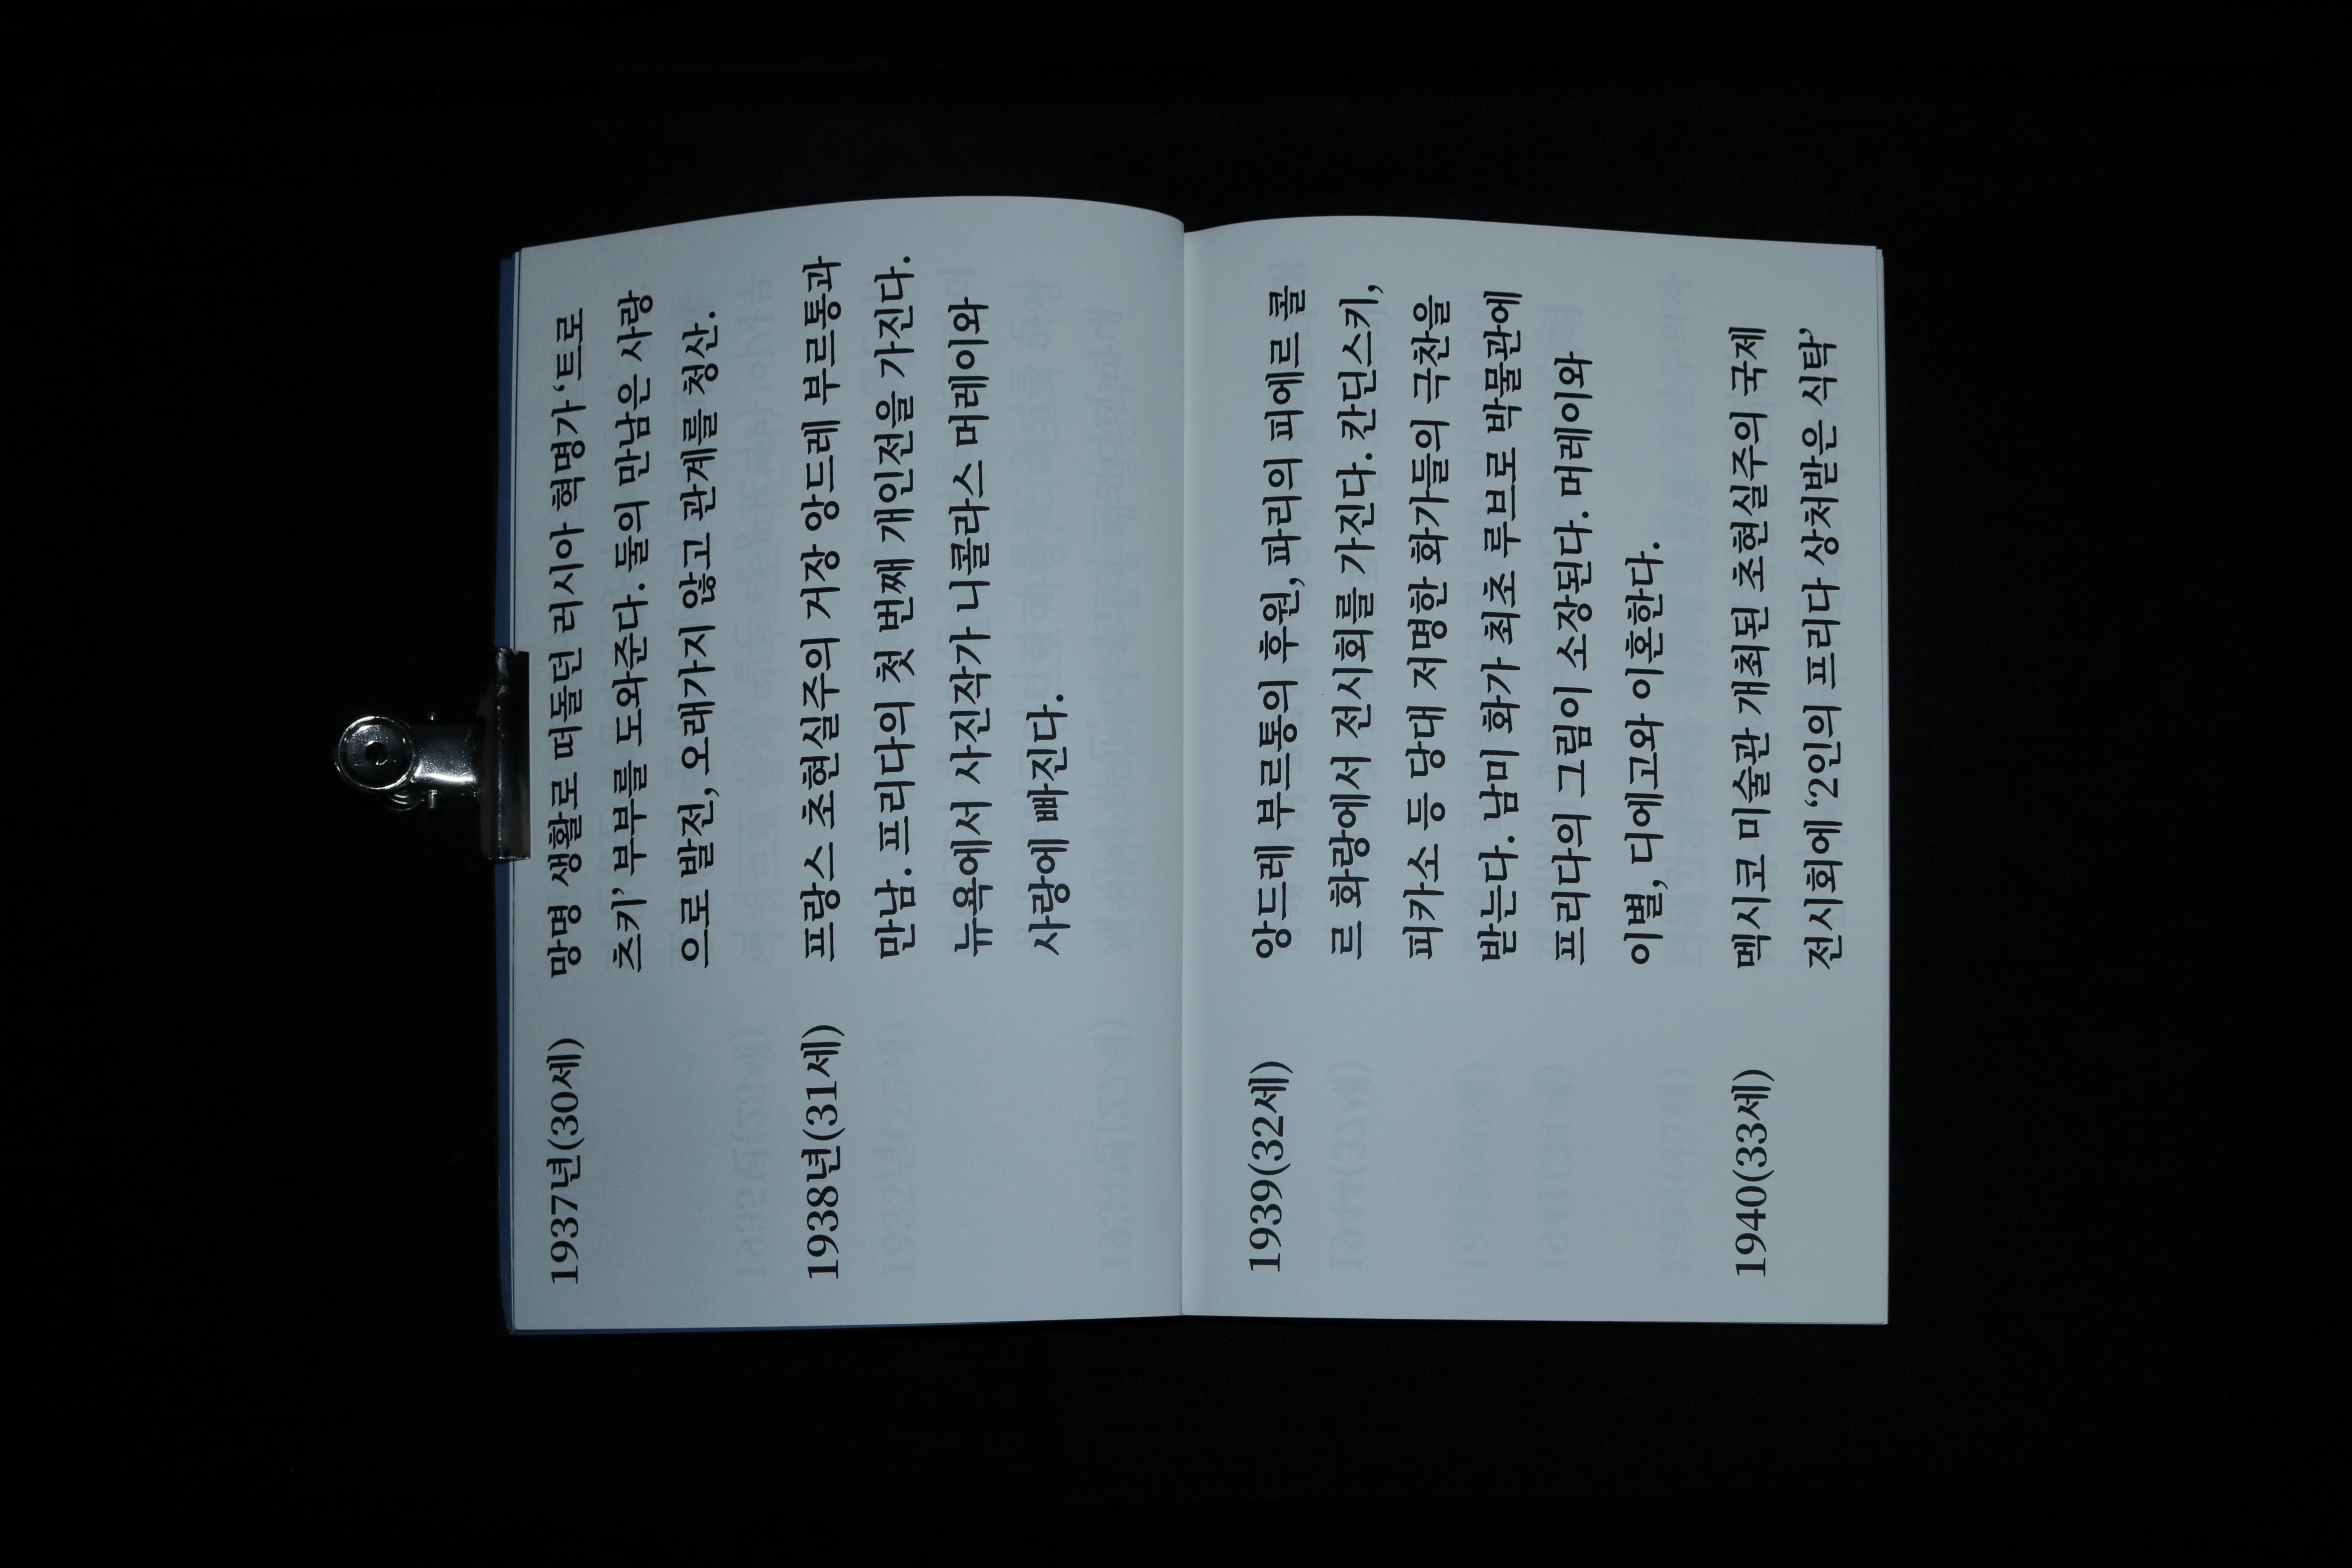 1937년(30세) 망명 생활로 떠돌던 러시아 혁명가 ‘트로
츠키’ 부부를 도와준다. 둘의 만남은 사랑
으로 발전, 오래가지 않고 관계를 청산.
1938년(31세) 프랑스 초현실주의 거장 앙드레 부르통과
만남. 프리다의 첫 번째 개인전을 가진다.
뉴욕에서 사진작가 니콜라스 머레이와
사랑에 빠진다.
1939(32세) 앙드레 부르통의 후원, 파리의 피에르 콜
르 화랑에서 전시회를 가진다. 칸딘스키,
피카소 등 당대 저명한 화가들의 극찬을
받는다. 남미 화가 최초 루브로 박물관에
프리다의 그림이 소장된다. 머레이와
이별, 디에고와 이혼한다.
1940(33세) 멕시코 미술관 개최된 초현실주의 국제
전시회에 ‘2인의 프리다 상처받은 식탁’